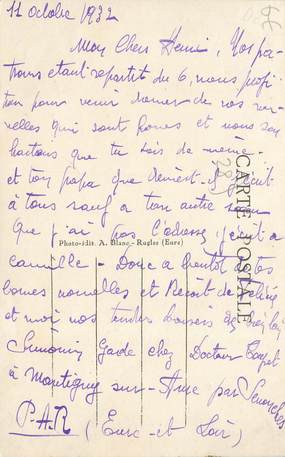 11 octobre 1932
Mon Cher Henri, Nos pa-
trons etant repartit du 6, nous profi-
ton pour venir donner de nos nou-
velles qui sont bonnes et nous sou-
haitons que tu sois de même
et ton papa que devient-il j'ecrit
à tous sauf a ton autre
Que j'ai pas l'adresse j'ecrit a
Camille - Donc a bientot
bonnes nouvelles et Benoit
et moi nos tendres baisers
Garde chez Docteur
à Montigny sur-Avre par Senonches
P.A.R (Eure-et Loir)
Photo-édit. A. Blanc-Rugles (Eure)
CARTE POSTALE